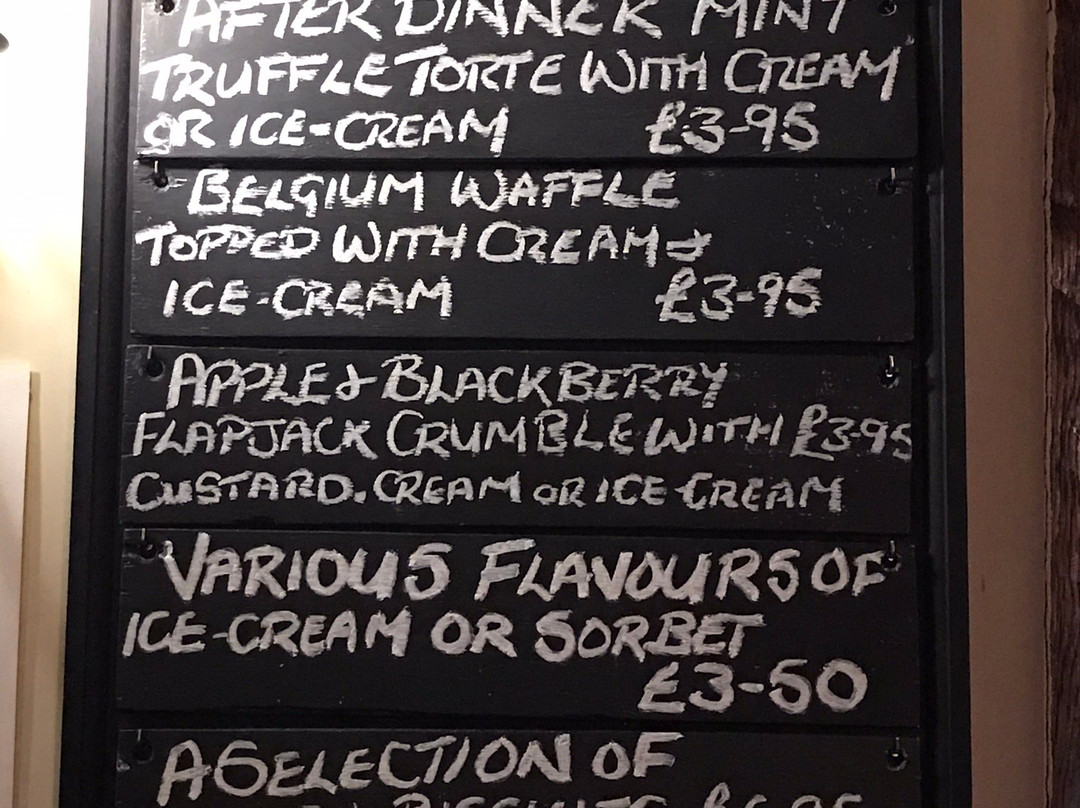 AFTER DINNER MINT
TRUFFLE TORTE WITH CREAM
OR ICE-CREAM £3-95
BELGIUM WAFFLE
TOPPED WITH CREAM &
ICE-CREAM £3-95
APPLE & BLACKBERRY
FLAPJACK CRUMBLE WITH £3-95
CUSTARD. CREAM OR ICE-CREAM
VARIOUS FLAVOURS OF
ICE-CREAM OR SORBET
£3-50
A SELECTION OF
BISCUITS